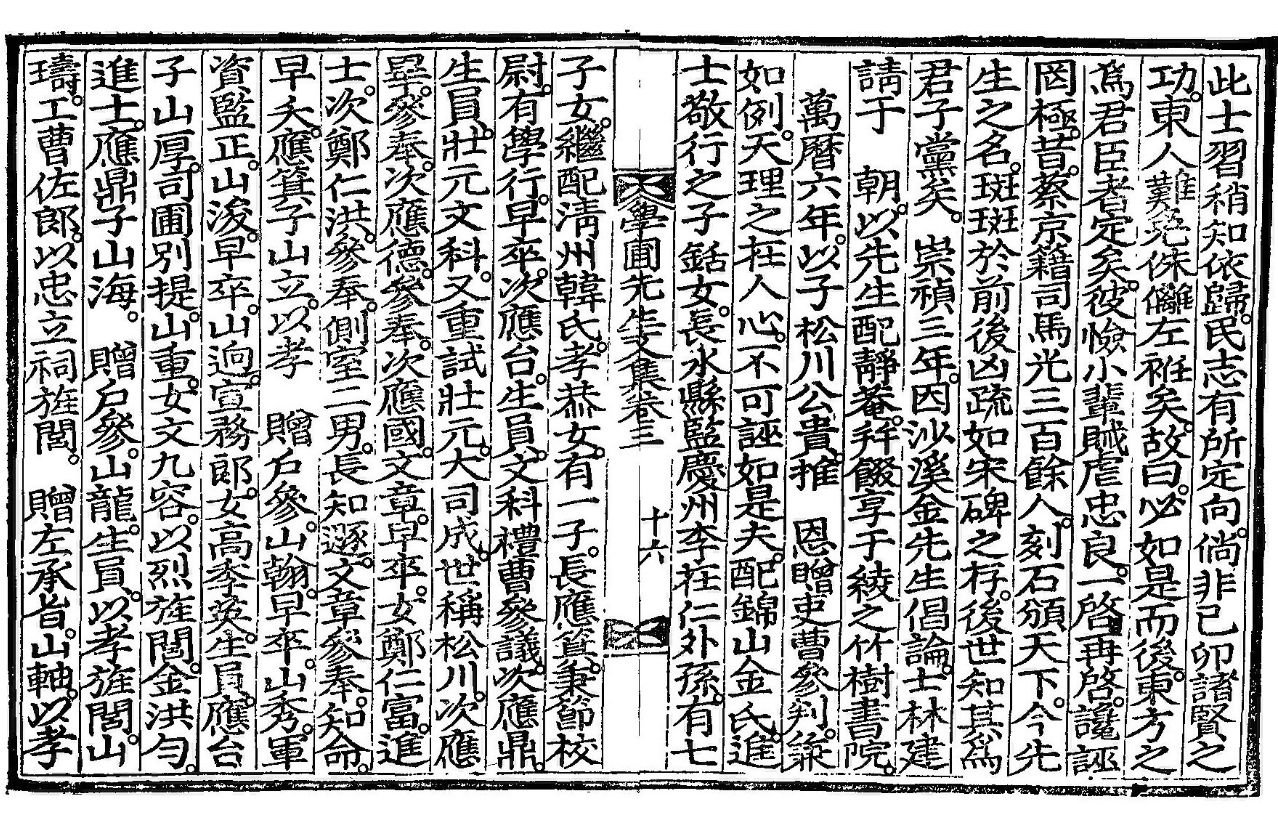 此士習稍知依歸。民志有所定向。倘非己卯諸賢之
功。東人雖冀免侏離左衽矣。故曰。必如是而後。東方之
爲君臣者定矣。彼憸小輩賊虐忠良。一啓再啓。讒誣
罔極。昔。蔡京籍司馬光三百餘人。刻石頒天下。今先
生之名。斑斑於前後凶疏如宋碑之存。後世知其爲
君子黨矣。 崇禎三年。因沙溪金先生倡論。士林建
請于 朝。以先生配靜菴。幷餟享于綾之竹樹書院。
萬曆六年。以子松川公貴。推 恩贈吏曹參判。祭
如例。天理之在人心。不可誣如是夫。配錦山金氏。進
士敬行之子銛女。長水縣監慶州李在仁外孫。有七
學圃先生文集卷三 十六
子女。繼配淸州韓氏。孝恭女。有一子。長應箕。秉節校
尉。有學行。早卒。次應台。生員。文科禮曹參議。次應鼎。
生員。壯元文科。又重試壯元。大司成。世稱松川。次應
畢。參奉。次應德。參奉。次應國。文章。早卒。女鄭仁富。進
士。次鄭仁洪。參奉。側室二男。長知遜。文章參奉。知命。
早夭。應箕子山立。以孝 贈戶參。山翰。早卒。山秀。軍
資監正。山浚。早卒。山逈。宣務郞。女高季英。生員。應台
子山厚。司圃別提。山重。女文九容。以烈旌閭。金洪勻。
進士。應鼎子山海。 贈戶參。山龍。生員。以孝旌閭。山
璹。工曹佐郞。以忠立祠旌閭。 贈左承旨。山軸。以孝